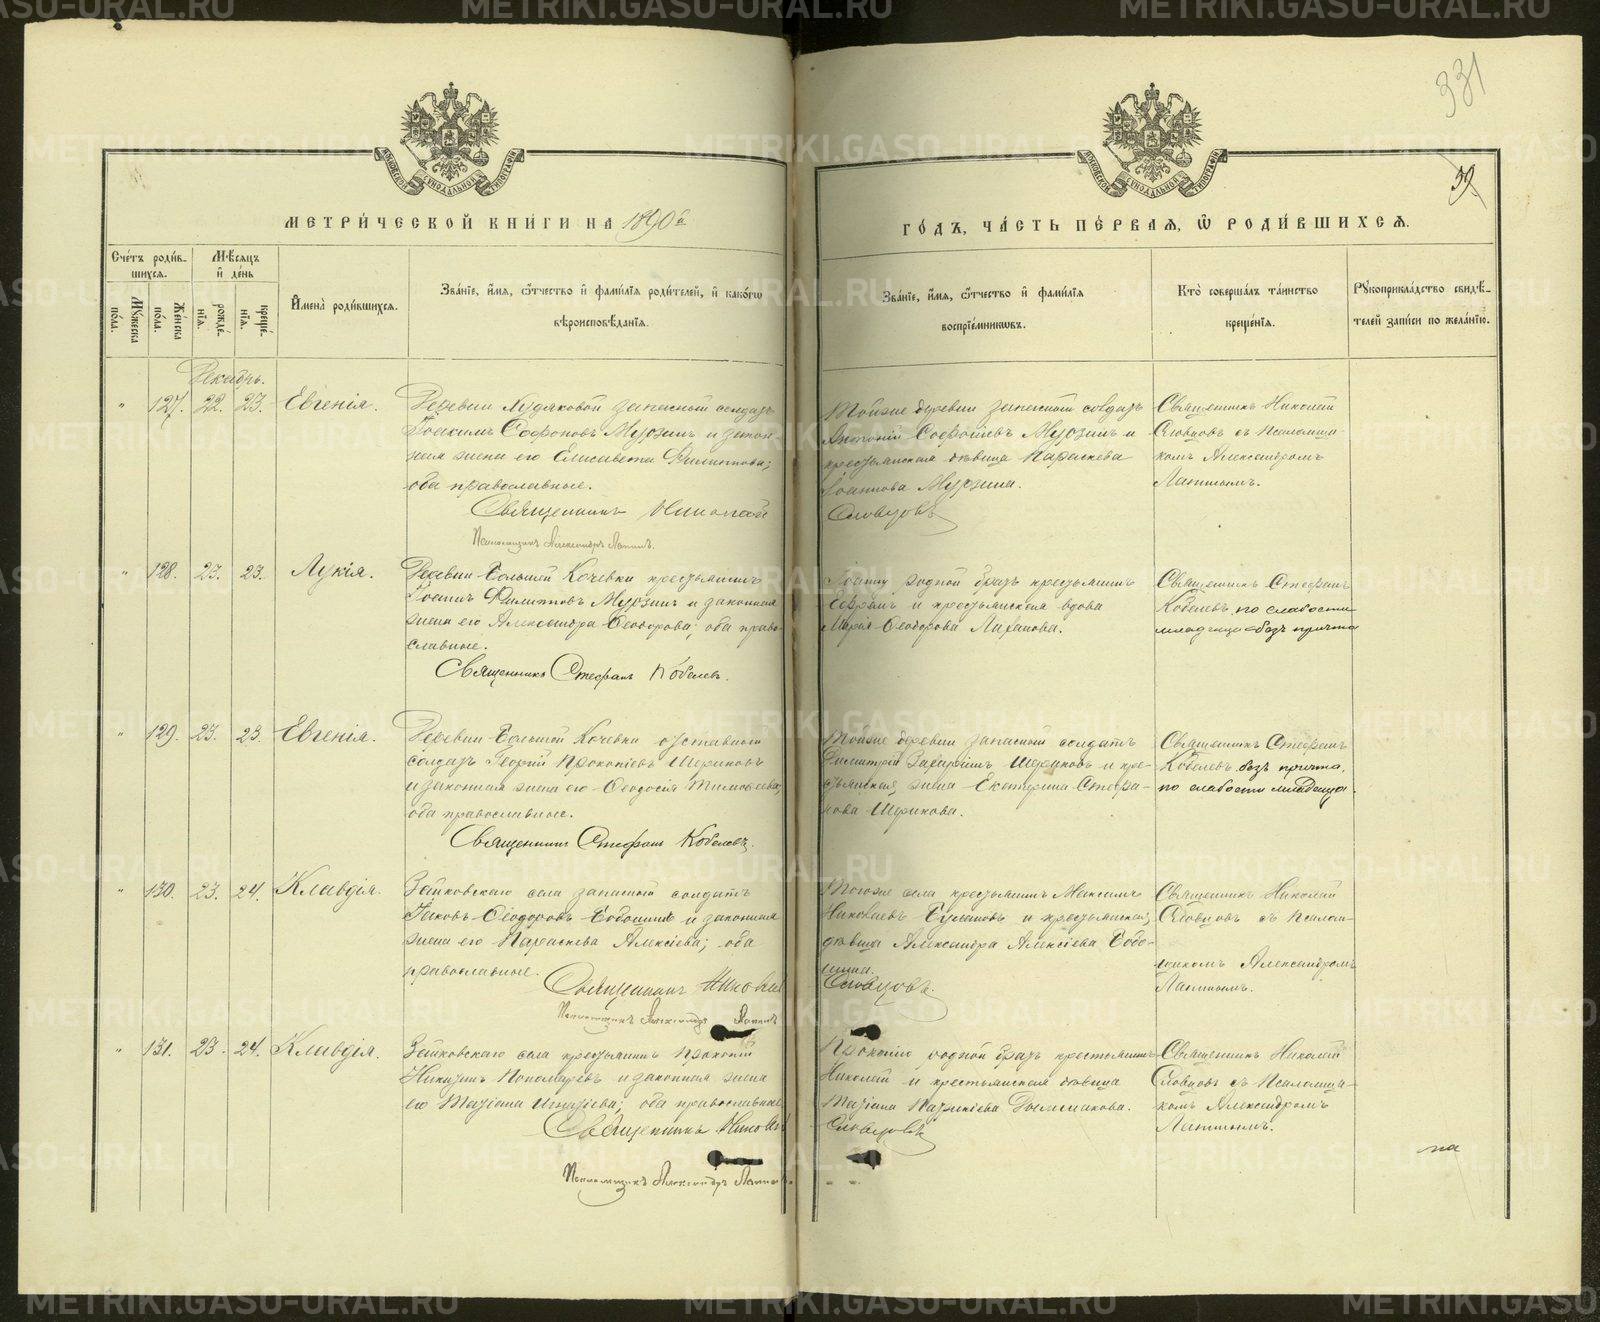 331
39
МЕТРИ́ЧЕСКОЙ КНИ́ГИ НА 1890й
ГО́ДЪ, ЧА́СТЬ ПЕ́РВАЯ, Ѿ РОДИ́ВШИХСЯ.
Сче́тъ роди́в-
шихся.
Му́жеска
по́ла.
Же́нска
по́ла.
Мѣ́сяцъ
и҆ де́нь
рожде́-
нїя.
креще́-
нїя.
И҆мена̀ роди́вшихся.
Зва́нїе, и҆́мя, ѻ҆́тчество и҆ фами́лїя роди́телей, и҆ како́гѡ
вѣроисповѣ́данїя.
Зва́нїе, и҆́мя, ѻ҆́тчество и҆ фами́лїя
воспрїе́мниковъ.
Кто̀ соверша́лъ та́инство
креще́нїя.
Рꙋкоприкла́дство свидѣ́-
телей за́писи по жела́нїю.
Декабрь.
" 127. 22. 23. Евгенія.
Деревни Худяковой запасный солдатъ
Іоакимъ Софоновъ Мурзинъ и закон-
ная жена его Елисавета Филиппова;
оба православные.
Священникъ Николай
Псаломщикъ Александръ Лапинъ.
Тойже деревни запасный солдатъ
Антоній Софоніевъ Мурзинъ и
крестьянская дѣвица Параскева
Іоаннова Мурзина.
Словцовъ
Священникъ Николай
Словцовъ съ Псаломщи-
комъ Александромъ
Лапинымъ.
" 128. 23. 23. Лукія.
Деревни Большой Кочевки крестьянинъ
Іоаннъ Филипповъ Мурзинъ и законная
жена его Александра Ѳеодорова; оба право-
славные.
Священникъ Стефанъ Кобелевъ.
Іоанну родной братъ крестьянинъ
Ефремъ и крестьянская вдова
Марія Ѳеодорова Лаханова.
Священникъ Стефанъ
Кобелевъ, по слабости
младенца безъ причта
" 129. 23. 23. Евгенія.
Деревни Большой Кочевки отставной
солдатъ Георгій Прокопіевъ Шориковъ
и законная жена его Ѳеодосія Тимоѳеева;
оба православные.
Священникъ Стефанъ Кобелевъ.
Тойже деревни запасный солдатъ
Димитрій Захаріинъ Шориковъ и кре-
стьянская жена Екатерина Стефа-
нова Шорикова.
Священникъ Стефанъ
Кобелевъ, безъ причта,
по слабости младенца.
" 130. 23. 24. Клавдія.
Зайковскаго села запасный солдатъ
Іаковъ Ѳеодоровъ Бобошинъ и законная
жена его Параскева Алексіева; оба
православные.
Священникъ Николай
Псаломщикъ Александръ Лапинъ
Тогоже села крестьянинъ Максимъ
Николаевъ Булановъ и крестьянская
дѣвица Александра Алексіева Бобо-
шина.
Словцовъ.
Священникъ Николай
Словцовъ съ Псалом-
щикомъ Александромъ
Лапинымъ.
" 131. 23. 24. Клавдія.
Зайковскаго села крестьянинъ Прокопій
Никитинъ Пономаревъ и законная жена
его Татіана Игнатіева; оба православные
Священникъ Николай
Псаломщикъ Александръ Лапинъ
Прокопію родной братъ крестьянинъ
Николай и крестьянская дѣвица
Татіана Патрикіева Долматова.
Словцовъ
Священникъ Николай
Словцовъ съ Псаломщи-
комъ Александромъ
Лапинымъ.
на
METRIKI.GASO-URAL.RU